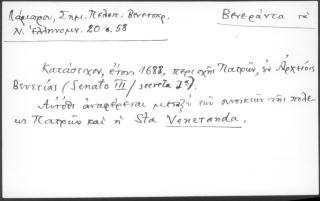 Λάμπρου, Σημ. Πελοπ. Βενετοκρ.
Ν. Ἑλληνομν. 20 σ. 58
Βενεράντα τὰ
Κατάστιχον, ἔτους 1688, περιοχῆς Πατρῶν, ἐν Ἀρχείοις
Βενετίας (Senato III / secreta
Αὐτόθι ἀναφέρεται μεταξὺ τῶν συνοικιῶν τῆς πόλε
ως Πατρῶν καὶ ἡ Sta Veneranda.